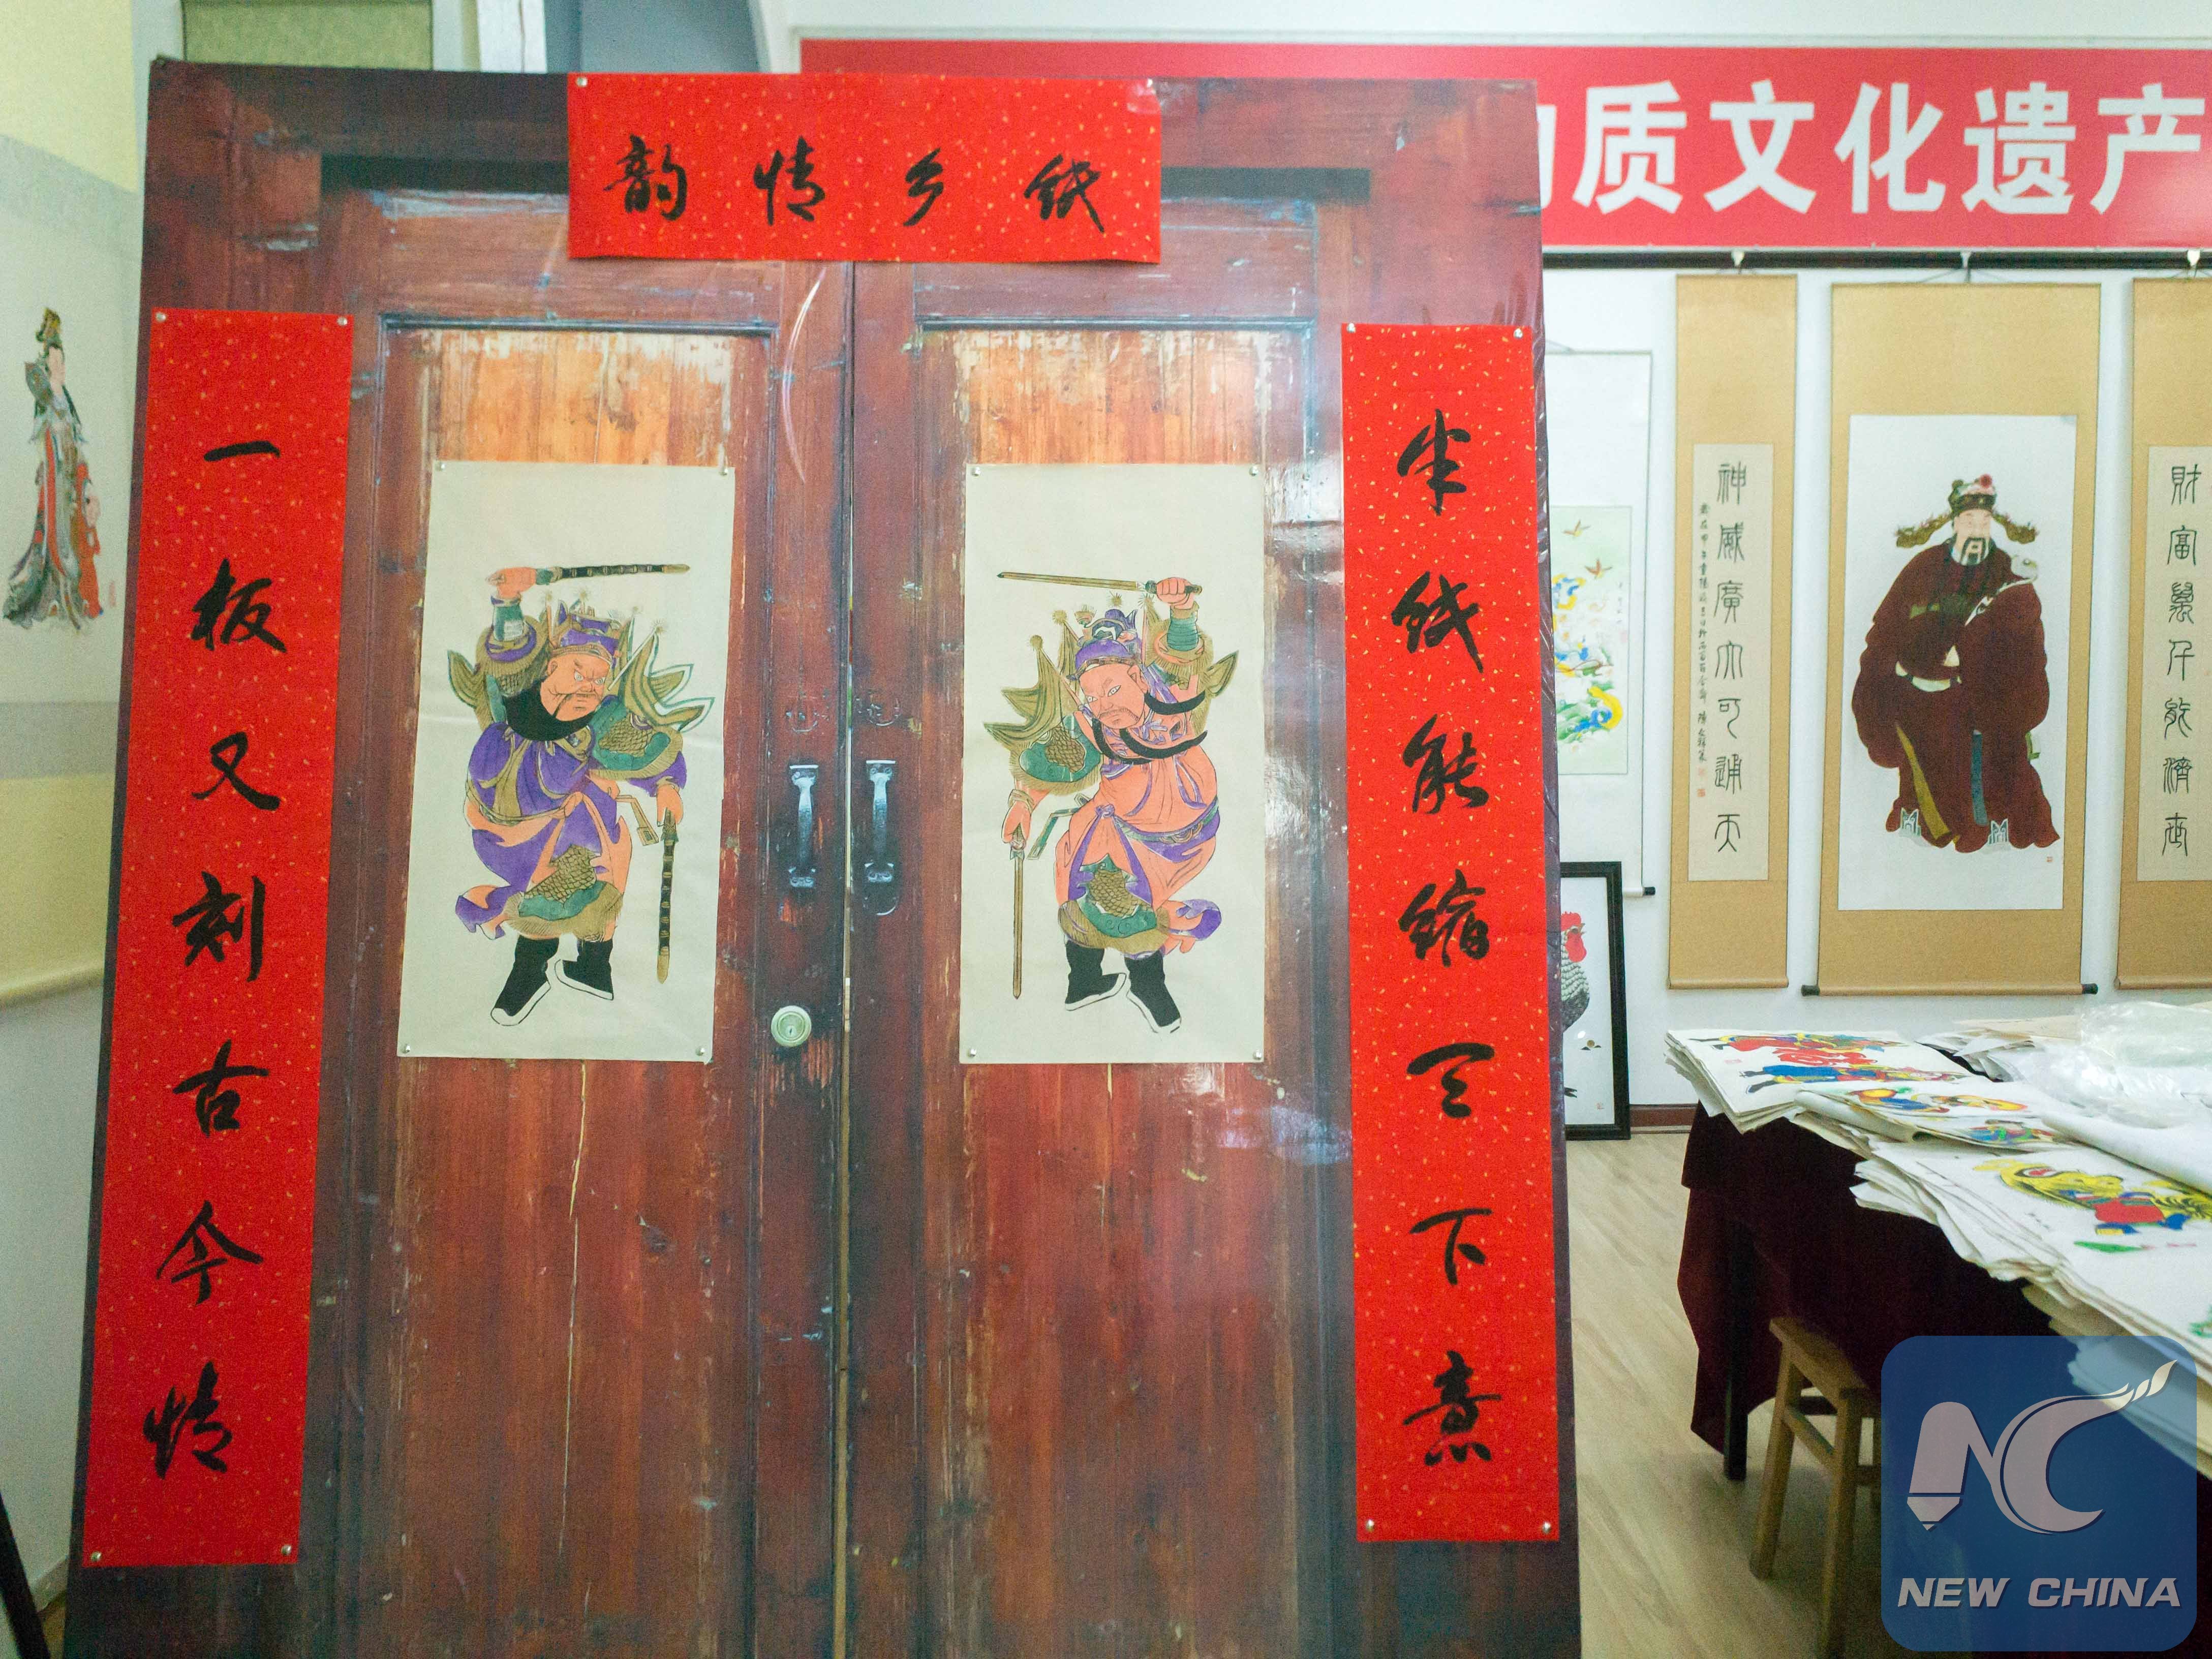 纸乡情韵
半纸能缩天下意
一板又刻古今情
质文化遗产
神威廣大可通天
財富萬千能濟世
NEW CHINA